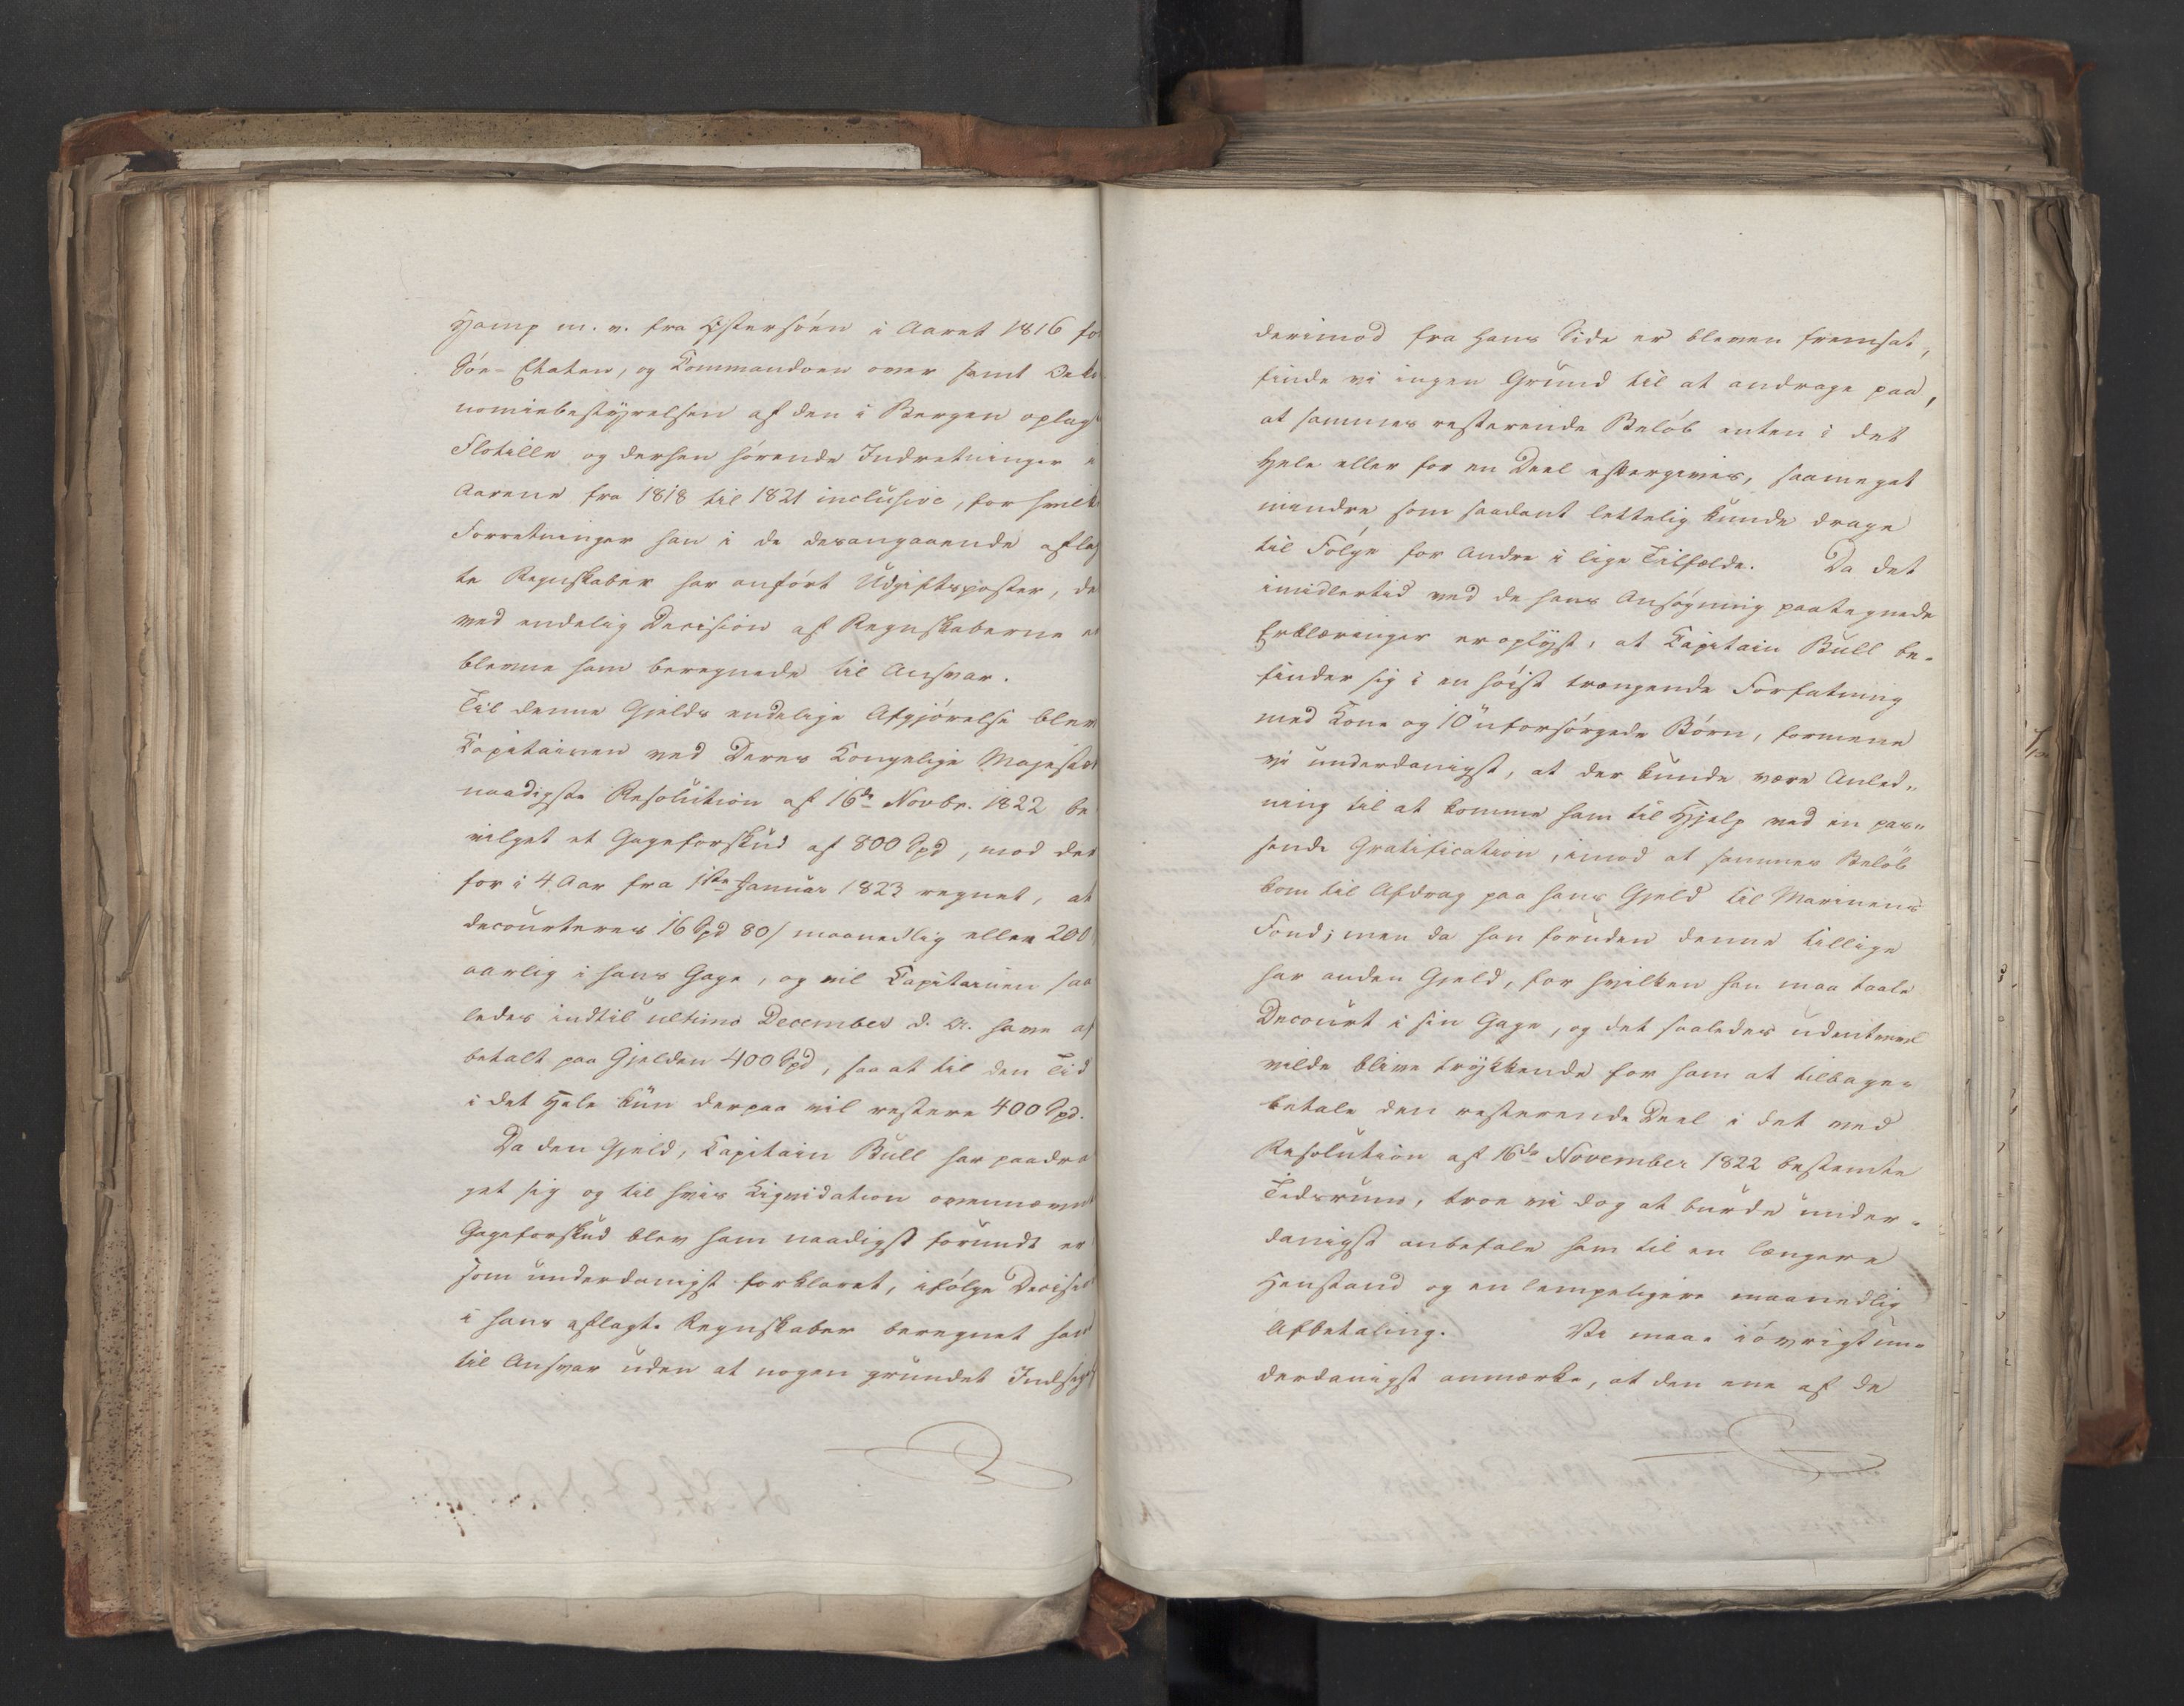 Hamp m. v. fra Østersöen i Aaret 1816 for
Söe-Etaten, og Kommandoen over samt Oeko
nomiebestÿrelsen af den i Bergen oplag
Flotille og dersen hörende Indretninger i
Aarene fra 1818 til 1821 inclusive, for hvilke
Forretninger han i de desangaaende aflag
te Regnskaber har anfört Udgiftsposter, de
ved endelig Decision af Regnskaberne er
blevne ham beregnede til Ansvar.
Til denne Gjelds endelige Afgjörelse blev
Capitainen ved Deres Kongelige Majestæt
naadigste Resolution af 16de Novbr. 1822 be
vilget et Gageforskud af 800 Spd, mod der
for i 4 Aar fra 1ste Januar 1823 regnet, at
decourteres 16 Spd 80 / maanedlig eller 200
aarlig i hans Gage, og vil Capitainen saa
ledes indtil ultimo December d. A. have af
betalt paa Gjelden 400 Spd, saa at til den Tid
i det Hele kun derpaa vil restere 400 Spd.
Da den Gjeld, Capitain Bull har paadra
get sig og til hvis Liqvidation ovennævnt
Gageforskud blev ham naadigst forundt er
som underdanigst forklaret, ifölge Decision
i hans aflagte Regnskaber beregnet ham
til Ansvar uden at nogen grundet Indsig
derimod fra hans Side er bleven fremsat,
finde vi ingen Grund til at andrage paa,
at sammes resterende Belöb enten i det
Hele eller for en Deel eftergives, saameget
mindre, som saadant lettelig kunde drage
til Fölge for Andre i lige Tilfælde. Da det
imidlertid ved de hans Ansögning paategnede
Erklæringer er oplyst, at Capitain Bull be-
finder sig i en höist trængende Forfatning
med Kone og 10 uforsörgede Börn, formene
vi underdanigst, at der kunde være Anled-
ning til at komme ham til Hjelp ved en pas-
sende Gratification, imod at sammes Belöb
kom til Afdrag paa hans Gjeld til Marinens
Fond; men da han foruden denne tillige
har anden Gjeld, for hvilken han maa taale
Decourt i sin Gage, og det saaledes udentvivl
vilde blive trykkende for ham at tilbage-
betale den resterende Deel i det ved
Resolution af 16de November 1822 bestemte
Tidsrum, troe vi dog at burde under-
danigst anbefale ham til en længere
Henstand og en lempeligere maanedlig
Afbetaling. Vi maae iövrigt un-
derdanigst anmærke, at den ene af de